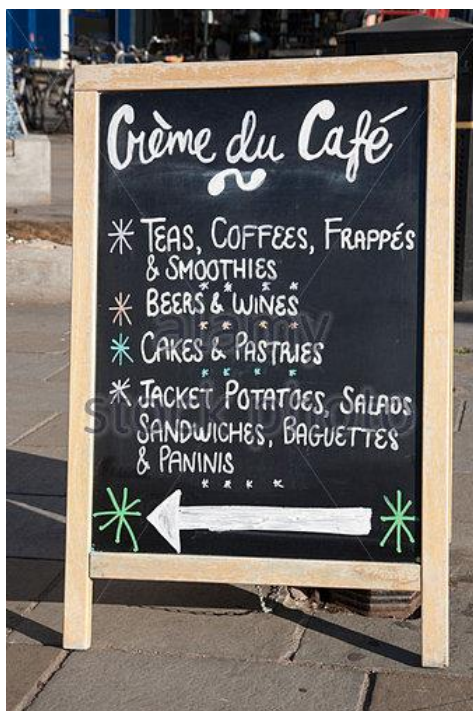 Crème du Café
TEAS, COFFEES, FRAPPÉS
& SMOOTHIES
BEERS & WINES
CAKES & PASTRIES
JACKET POTATOES, SALADS
SANDWICHES, BAGUETTES
& PANINIS
alamy
stock photo